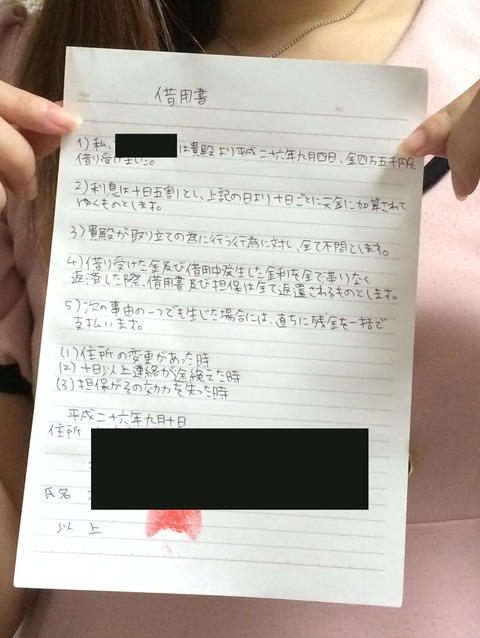 借用書
1) 私、は貴殿より平成二十六年九月四日、金四万五千円を
借り受けました。
2) 利息は十日五割とし、上記の日より十日ごとに元金に加算されて
ゆくものとします。
3) 貴殿が取り立ての為に行う行為に対し、全て不問とします。
4) 借り受けた金及び借用中発生した金利を全て滞りなく
返済した際、借用書及び担保は全て返還されるものとします。
5) 次の事由の一つでも生じた場合には、直ちに残金を一括で
支払います。
(1) 住所の変更があった時
(2) 十日以上連絡が途絶えた時
(3) 担保がその効力を失った時
平成二十六年九月十日
住所
氏名
以上